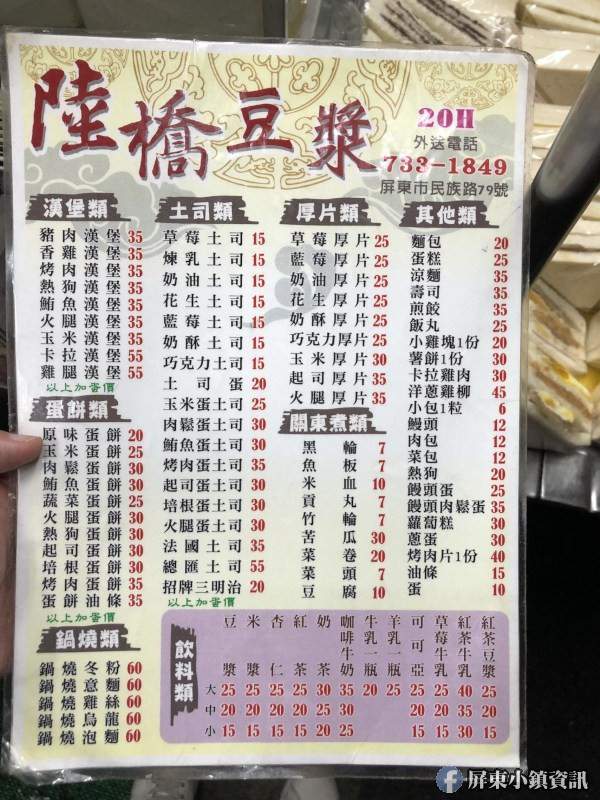 陸橋豆漿
20H
外送電話
733-1849
屏東市民族路79號
漢堡類
豬肉漢堡 35
香雞漢堡 35
烤肉漢堡 35
熱狗漢堡 35
鮪魚漢堡 35
火腿漢堡 35
玉米漢堡 35
卡拉漢堡 55
雞腿漢堡 55
以上加蛋價
蛋餅類
原味蛋餅 20
玉米蛋餅 25
肉鬆蛋餅 30
鮪魚蛋餅 30
蔬菜蛋餅 25
火腿蛋餅 30
熱狗蛋餅 30
起司蛋餅 30
培根蛋餅 30
烤肉蛋餅 35
蛋餅油條 35
以上加蛋價
鍋燒類
鍋燒冬粉 60
鍋燒意麵 60
鍋燒雞絲 60
鍋燒烏龍 60
鍋燒泡麵 60
土司類
草莓土司 15
煉乳土司 15
奶油土司 15
花生土司 15
藍莓土司 15
奶酥土司 15
巧克力土司 15
土司蛋 20
玉米蛋土司 25
肉鬆蛋土司 30
鮪魚蛋土司 30
烤肉蛋土司 35
起司蛋土司 30
培根蛋土司 30
火腿蛋土司 30
法國土司 35
總匯土司 55
招牌三明治 20
以上加蛋價
厚片類
草莓厚片 25
藍莓厚片 25
奶油厚片 25
花生厚片 25
奶酥厚片 25
巧克力厚片 25
玉米厚片 30
起司厚片 35
火腿厚片 35
關東煮類
黑輪 7
魚板 7
米血 10
貢丸 7
竹輪 7
苦瓜 30
菜卷 20
菜頭 7
豆腐 10
其他類
麵包 20
蛋糕 25
涼麵 35
壽司 35
煎餃 35
飯丸 25
小雞塊1份 20
薯餅1份 30
卡拉雞肉 30
洋蔥雞柳 45
小包1粒 6
饅頭 12
肉包 12
菜包 12
熱狗 20
饅頭蛋 25
饅頭肉鬆蛋 35
蘿蔔糕 30
蔥蛋 30
烤肉片1份 40
油條 15
蛋 10
飲料類
豆漿 米漿 杏仁 紅茶 奶茶 咖啡牛奶 牛乳一瓶 羊乳一瓶 可可亞 草莓牛乳 紅茶牛乳 紅茶豆漿
大 25 25 25 25 30 35 20 25 25 25 40 25
中 20 20 20 20 25 30 20 20 35 20
小 15 15 15 15 20 25 15 15 30 15
屏東小鎮資訊